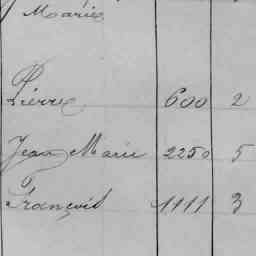 Marie
Pierre 600 2
Jean Marie 2250 5
François 1111 3